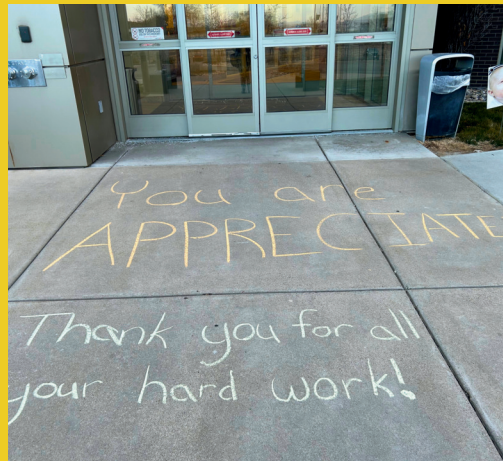 You are
APPRECIATE
Thank you for all
your hard work!